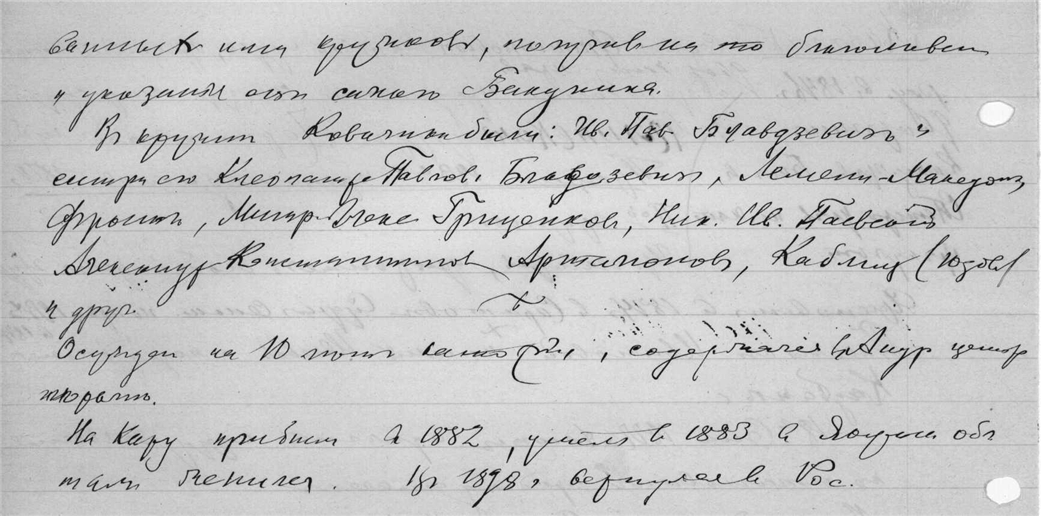 ванных им кружков, получив на то благословен
и указания от самого Бакунина.
В кружке Ковалика были: Ив. Пав. Блавдзевич и
сестра его Клеопатра Павлов. Блавдзевич, Лемени-Македон,
Фрост, Митр. Алекс. Гриценков, Ник. Ив. Паевский
Александр Константинов Артамонов, Каблиц (Юзов)
и друг.
Осужден на 10 лет каторги, содержался в централ
тюрьме.
На Кару прибыл в 1882, ушел в 1883 в Якутск обл
там женился. В 1898 г вернулся в Рос.